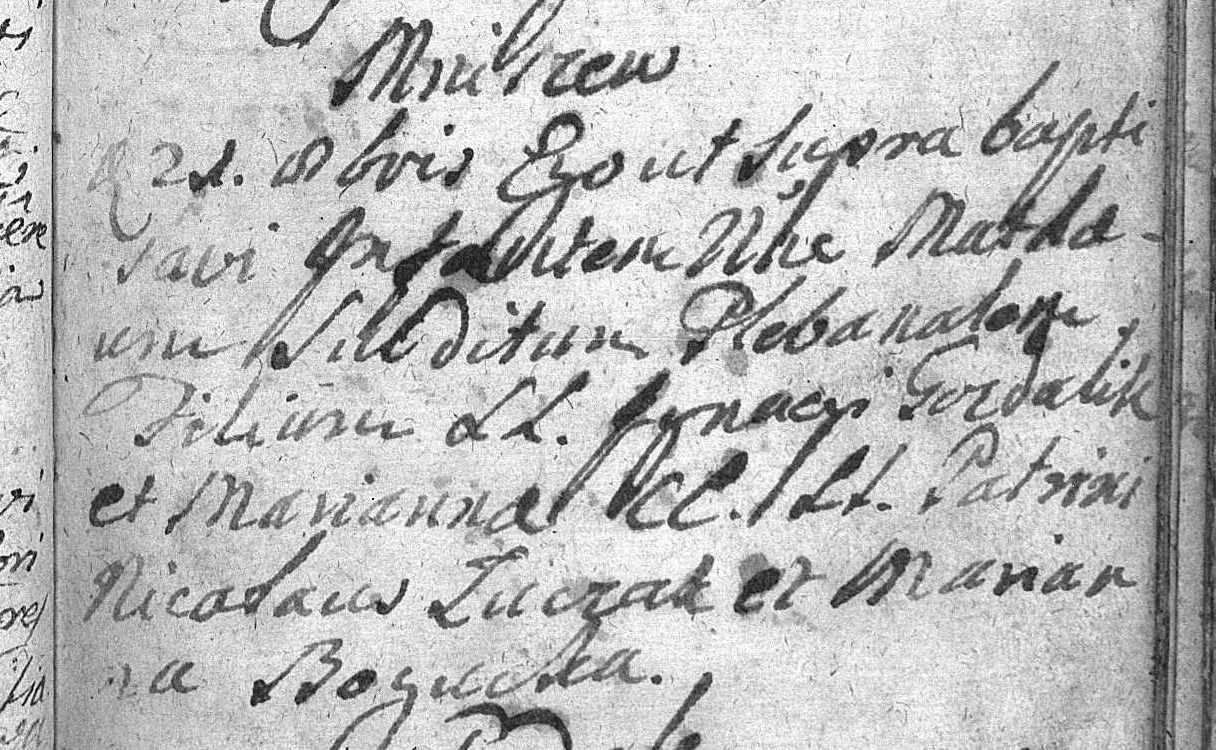 Mniszew
D 21. 8bris Ego ut supra bapti
savi Infantem Nne Mathæ-
um Subditum Plebanalem,
Filium LL. Ignacyi Gozdalik
et Mariannæ CC. LL. Patrini
Nicolaus Zuczak et Marian
na Bogucka.